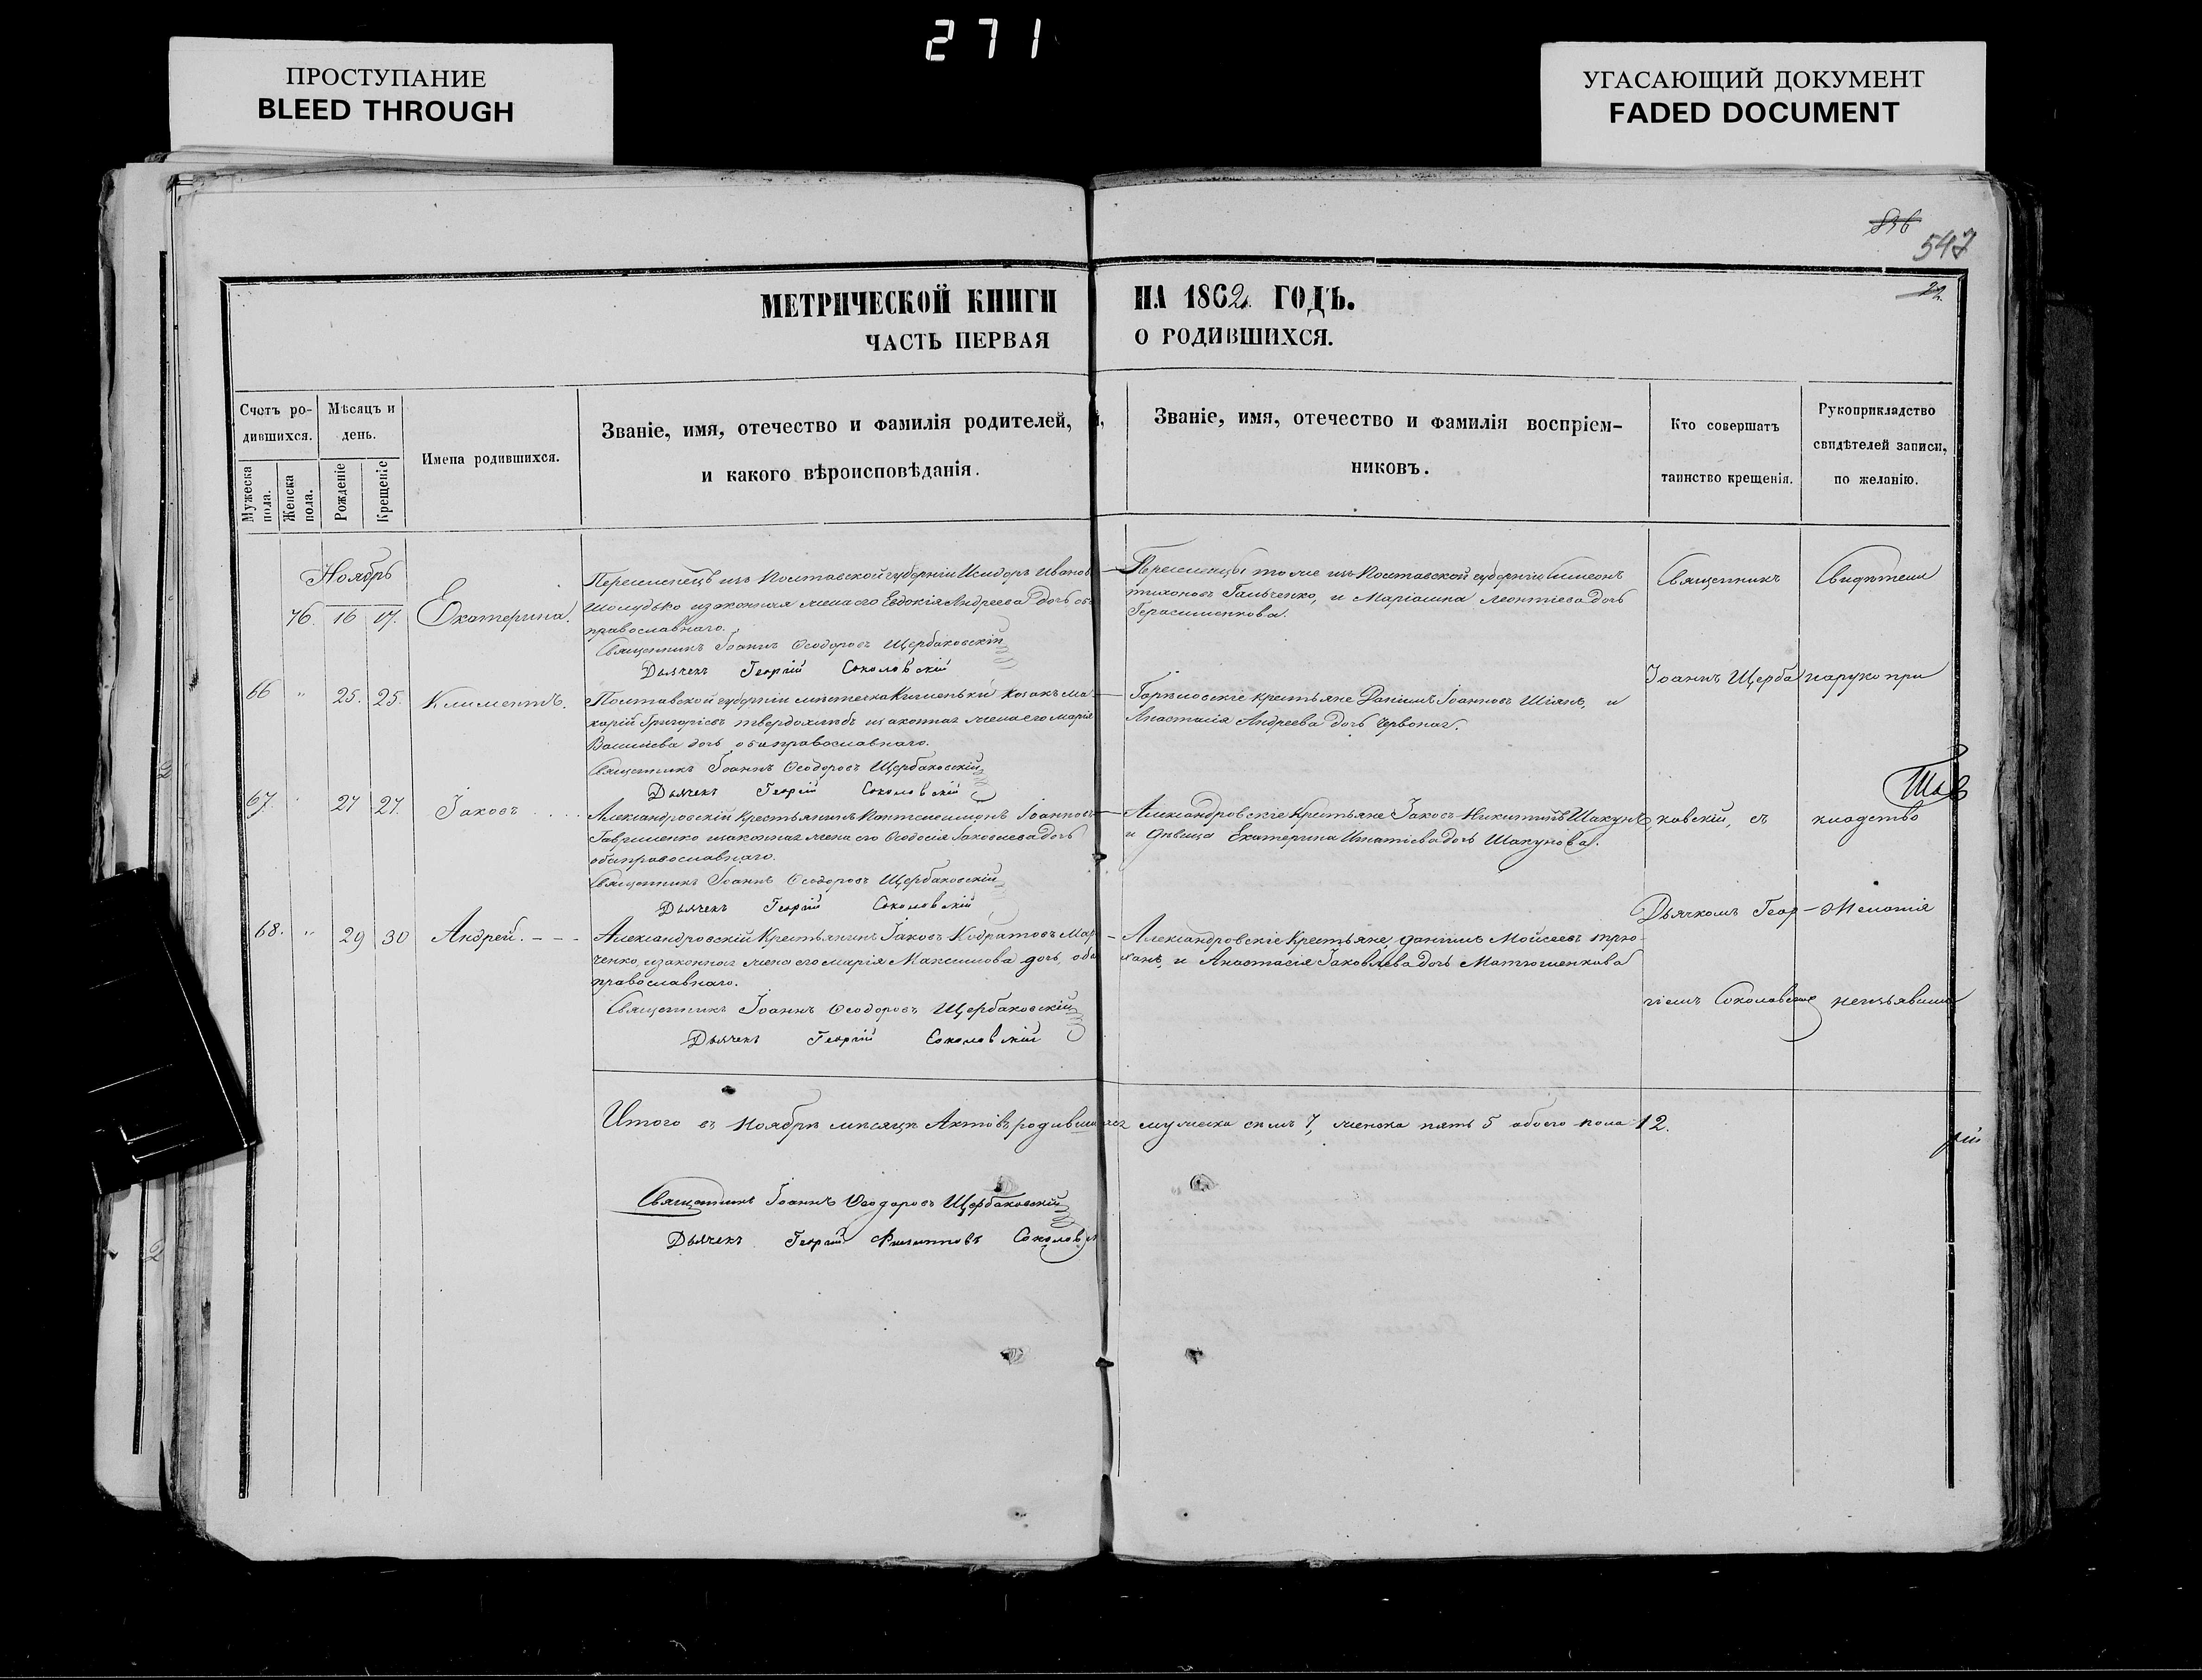 271
ПРОСТУПАНИЕ
BLEED THROUGH
УГАСАЮЩИЙ ДОКУМЕНТ
FADED DOCUMENT
547
22.
МЕТРИЧЕСКОЙ КНИГИ НА 1862 ГОДЪ.
ЧАСТЬ ПЕРВАЯ О РОДИВШИХСЯ.
Счетъ ро-
дившихся.
Мужеска пола.
Женска пола.
Мѣсяцъ и
день.
Рожденіе
Крещеніе
Имена родившихся.
Званіе, имя, отечество и фамилія родителей,
и какого вѣроисповѣданія.
Званіе, имя, отечество и фамилія воспріем-
никовъ.
Кто совершатъ
таинство крещенія.
Рукоприкладство
свидѣтелей записи,
по желанію.
Ноябрь
76. 16 17. Екатерина.
Переселенецъ изъ Полтавской губерніи Исидоръ Иванов
Шолудько изаконная жена его Евдокія Андреева дочь оба
православнаго.
Священникъ Іоаннъ Ѳеодоровъ Щербаковскій
Дьячекъ Георгій Соколовскій
Переселенцы тоже изъ Полтавской губерніи Симеонъ
Тихоновъ Гальченко, и Маріамна Леонтіева дочь
Герасименкова.
66 " 25. 25. Климентъ.
Полтавской губерніи мѣстечка Кишеньки козакъ Ма-
карій Григоріевъ Твердохлѣбъ изаконная жена его Марія
Василіева дочь оба православнаго.
Священникъ Іоаннъ Ѳеодоровъ Щербаковскій
Дьячекъ Георгій Соколовскій
крестьяне Даніилъ Іоанновъ Шіянъ, и
Анастасія Андреева дочь Червоная.
67. " 27 27. Іаковъ
Александровскій крестьянинъ Пантелеимонъ Іоанновъ
Гавриленко изаконная жена его Ѳеодосія Іаковлева дочь
оба православнаго.
Священникъ Іоаннъ Ѳеодоровъ Щербаковскій
Дьячекъ Георгій Соколовскій
Александровскіе Крестьяне Іаковъ Никитинъ Шакунъ
и дѣвица Екатерина Игнатіева дочь Шакунова.
68. " 29 30 Андрей. - - -
Александровскій Крестьянинъ Іаковъ Кодратовъ Мар-
ченко, изаконная жена его Марія Максимова дочь, оба
православнаго.
Священникъ Іоаннъ Ѳеодоровъ Щербаковскій
Дьячекъ Георгій Соколовскій
Александровскіе Крестьяне, Даніилъ Моисеевъ Трю-
ханъ, и Анастасія Іаковлева дочь Матюшенкова
Священникъ
Іоаннъ Щерба
ковскій, съ
Дьячкомъ Геор-
гіемъ Соколовскимъ
Свидѣтели
на руко при
кладство
желанія
неизъявили
Итого въ Ноябрѣ мѣсяцѣ Актовъ родившихся мужеска семь 7, женска пять 5 обоего пола 12.
Священникъ Іоаннъ Ѳеодоровъ Щербаковскій
Дьячекъ Георгій Филипповъ Соколовскій